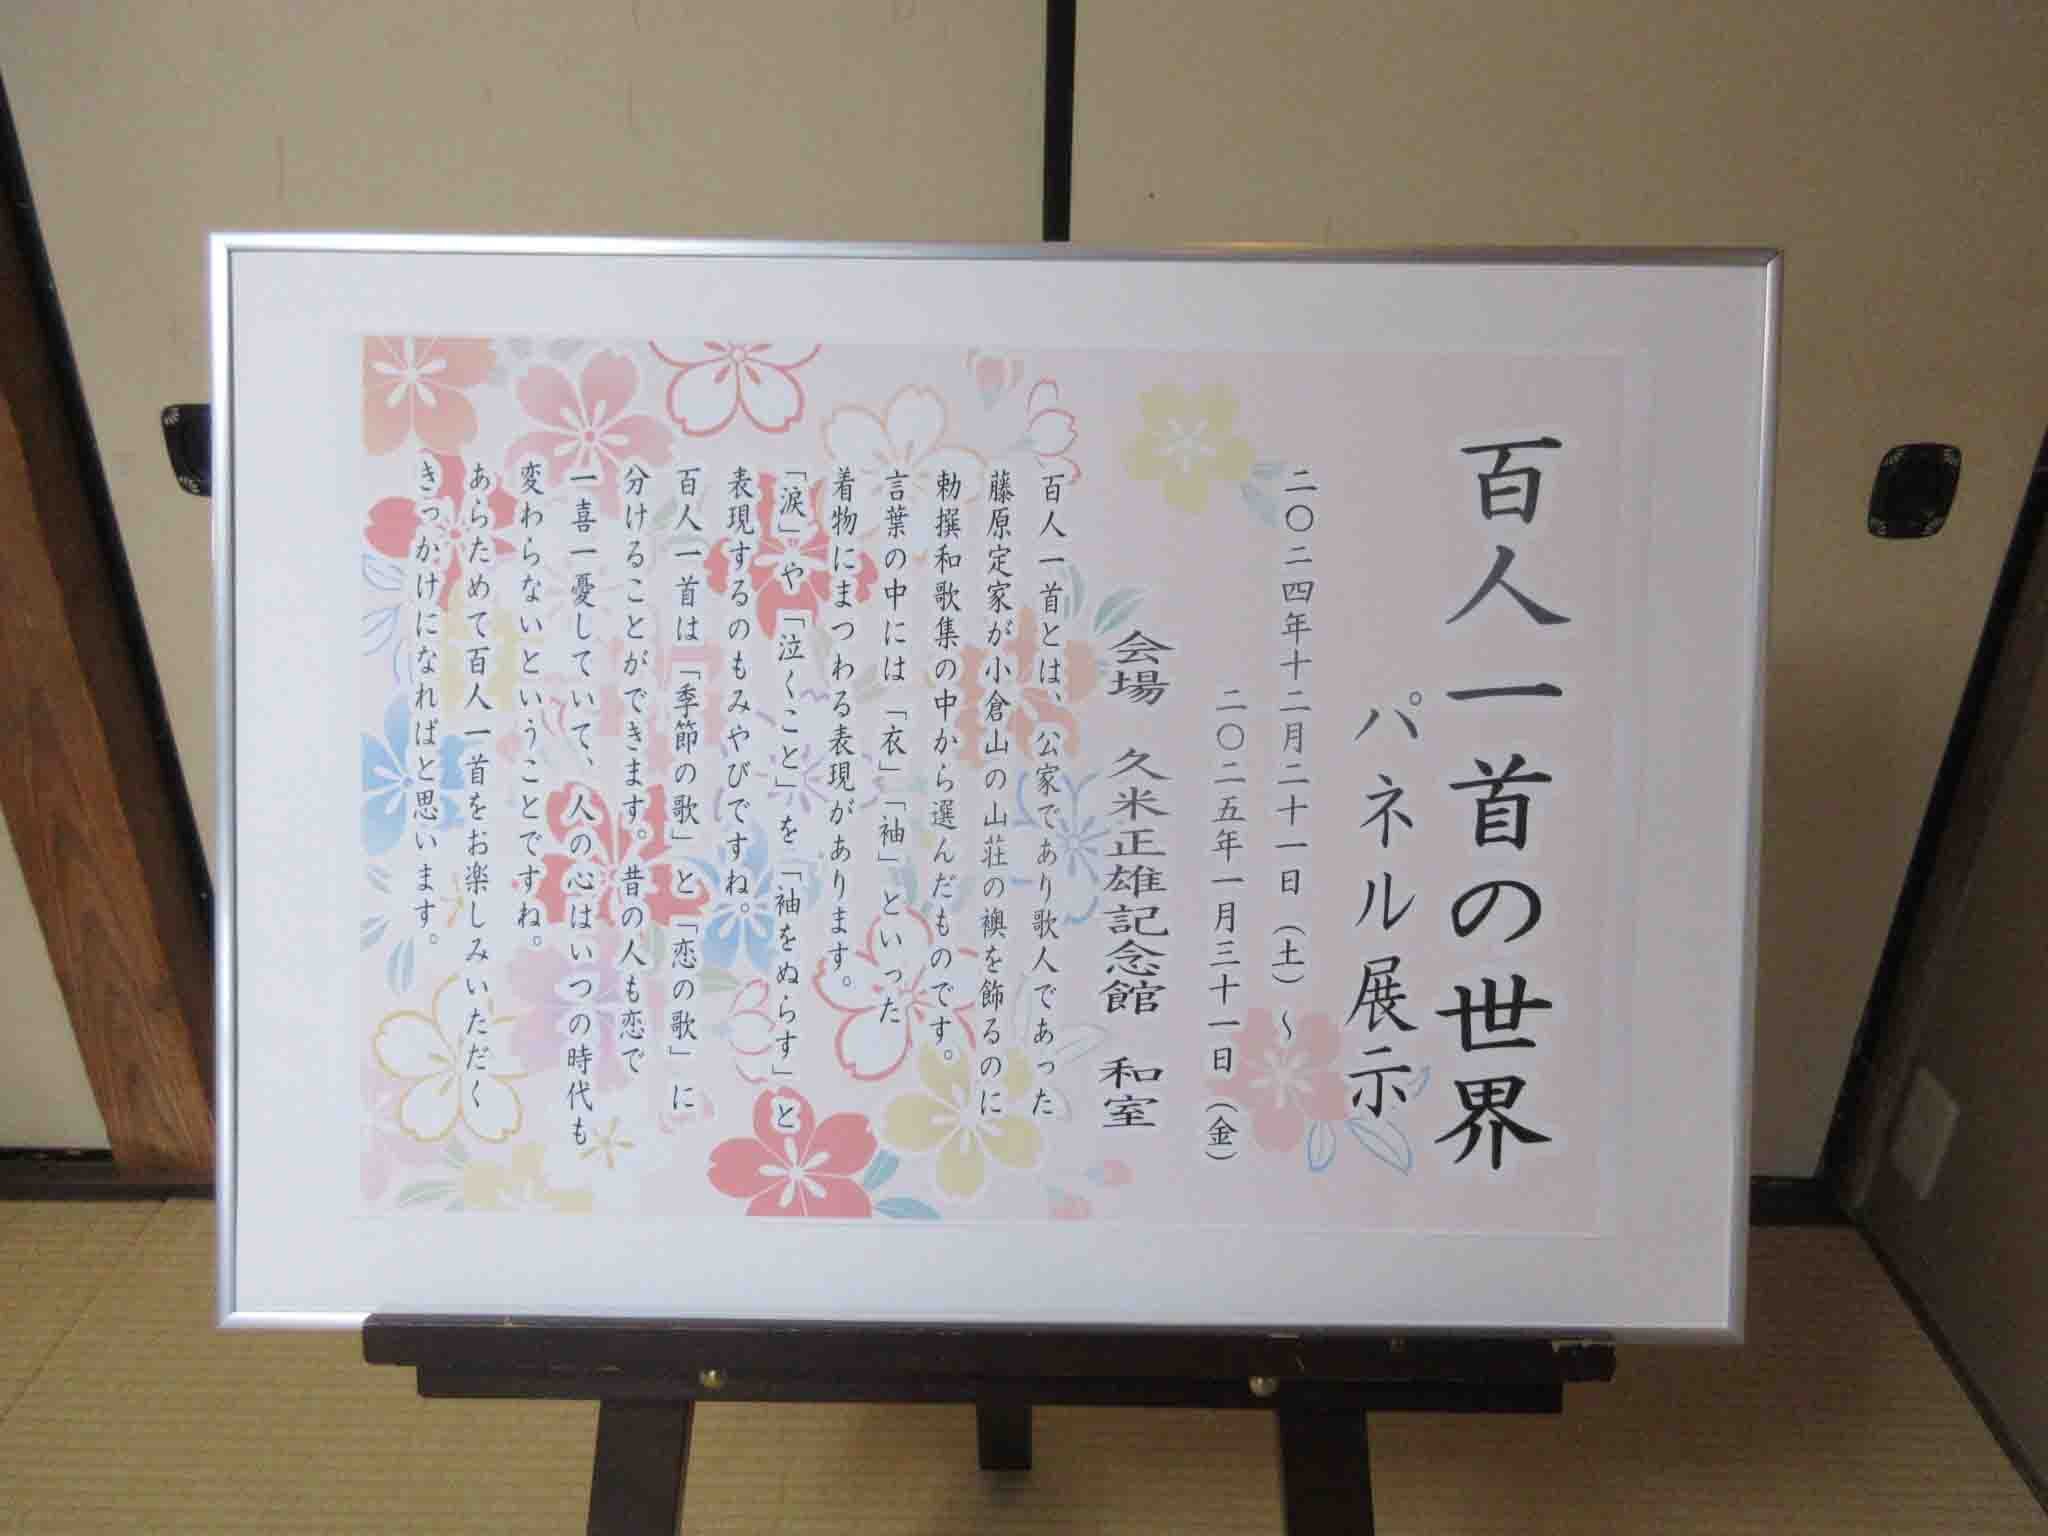 百人一首の世界
パネル展示
二〇二四年十二月二十一日（土）～
二〇二五年一月三十一日（金）
会場　久米正雄記念館　和室
百人一首とは、公家であり歌人であった
藤原定家が小倉山の山荘の襖を飾るのに
勅撰和歌集の中から選んだものです。
言葉の中には「衣」「袖」といった
着物にまつわる表現があります。
「涙」や「泣くこと」を「袖をぬらす」と
表現するのもみやびですね。
百人一首は「季節の歌」と「恋の歌」に
分けることができます。昔の人も恋で
一喜一憂していて、人の心はいつの時代も
変わらないということですね。
あらためて百人一首をお楽しみいただく
きっかけになればと思います。